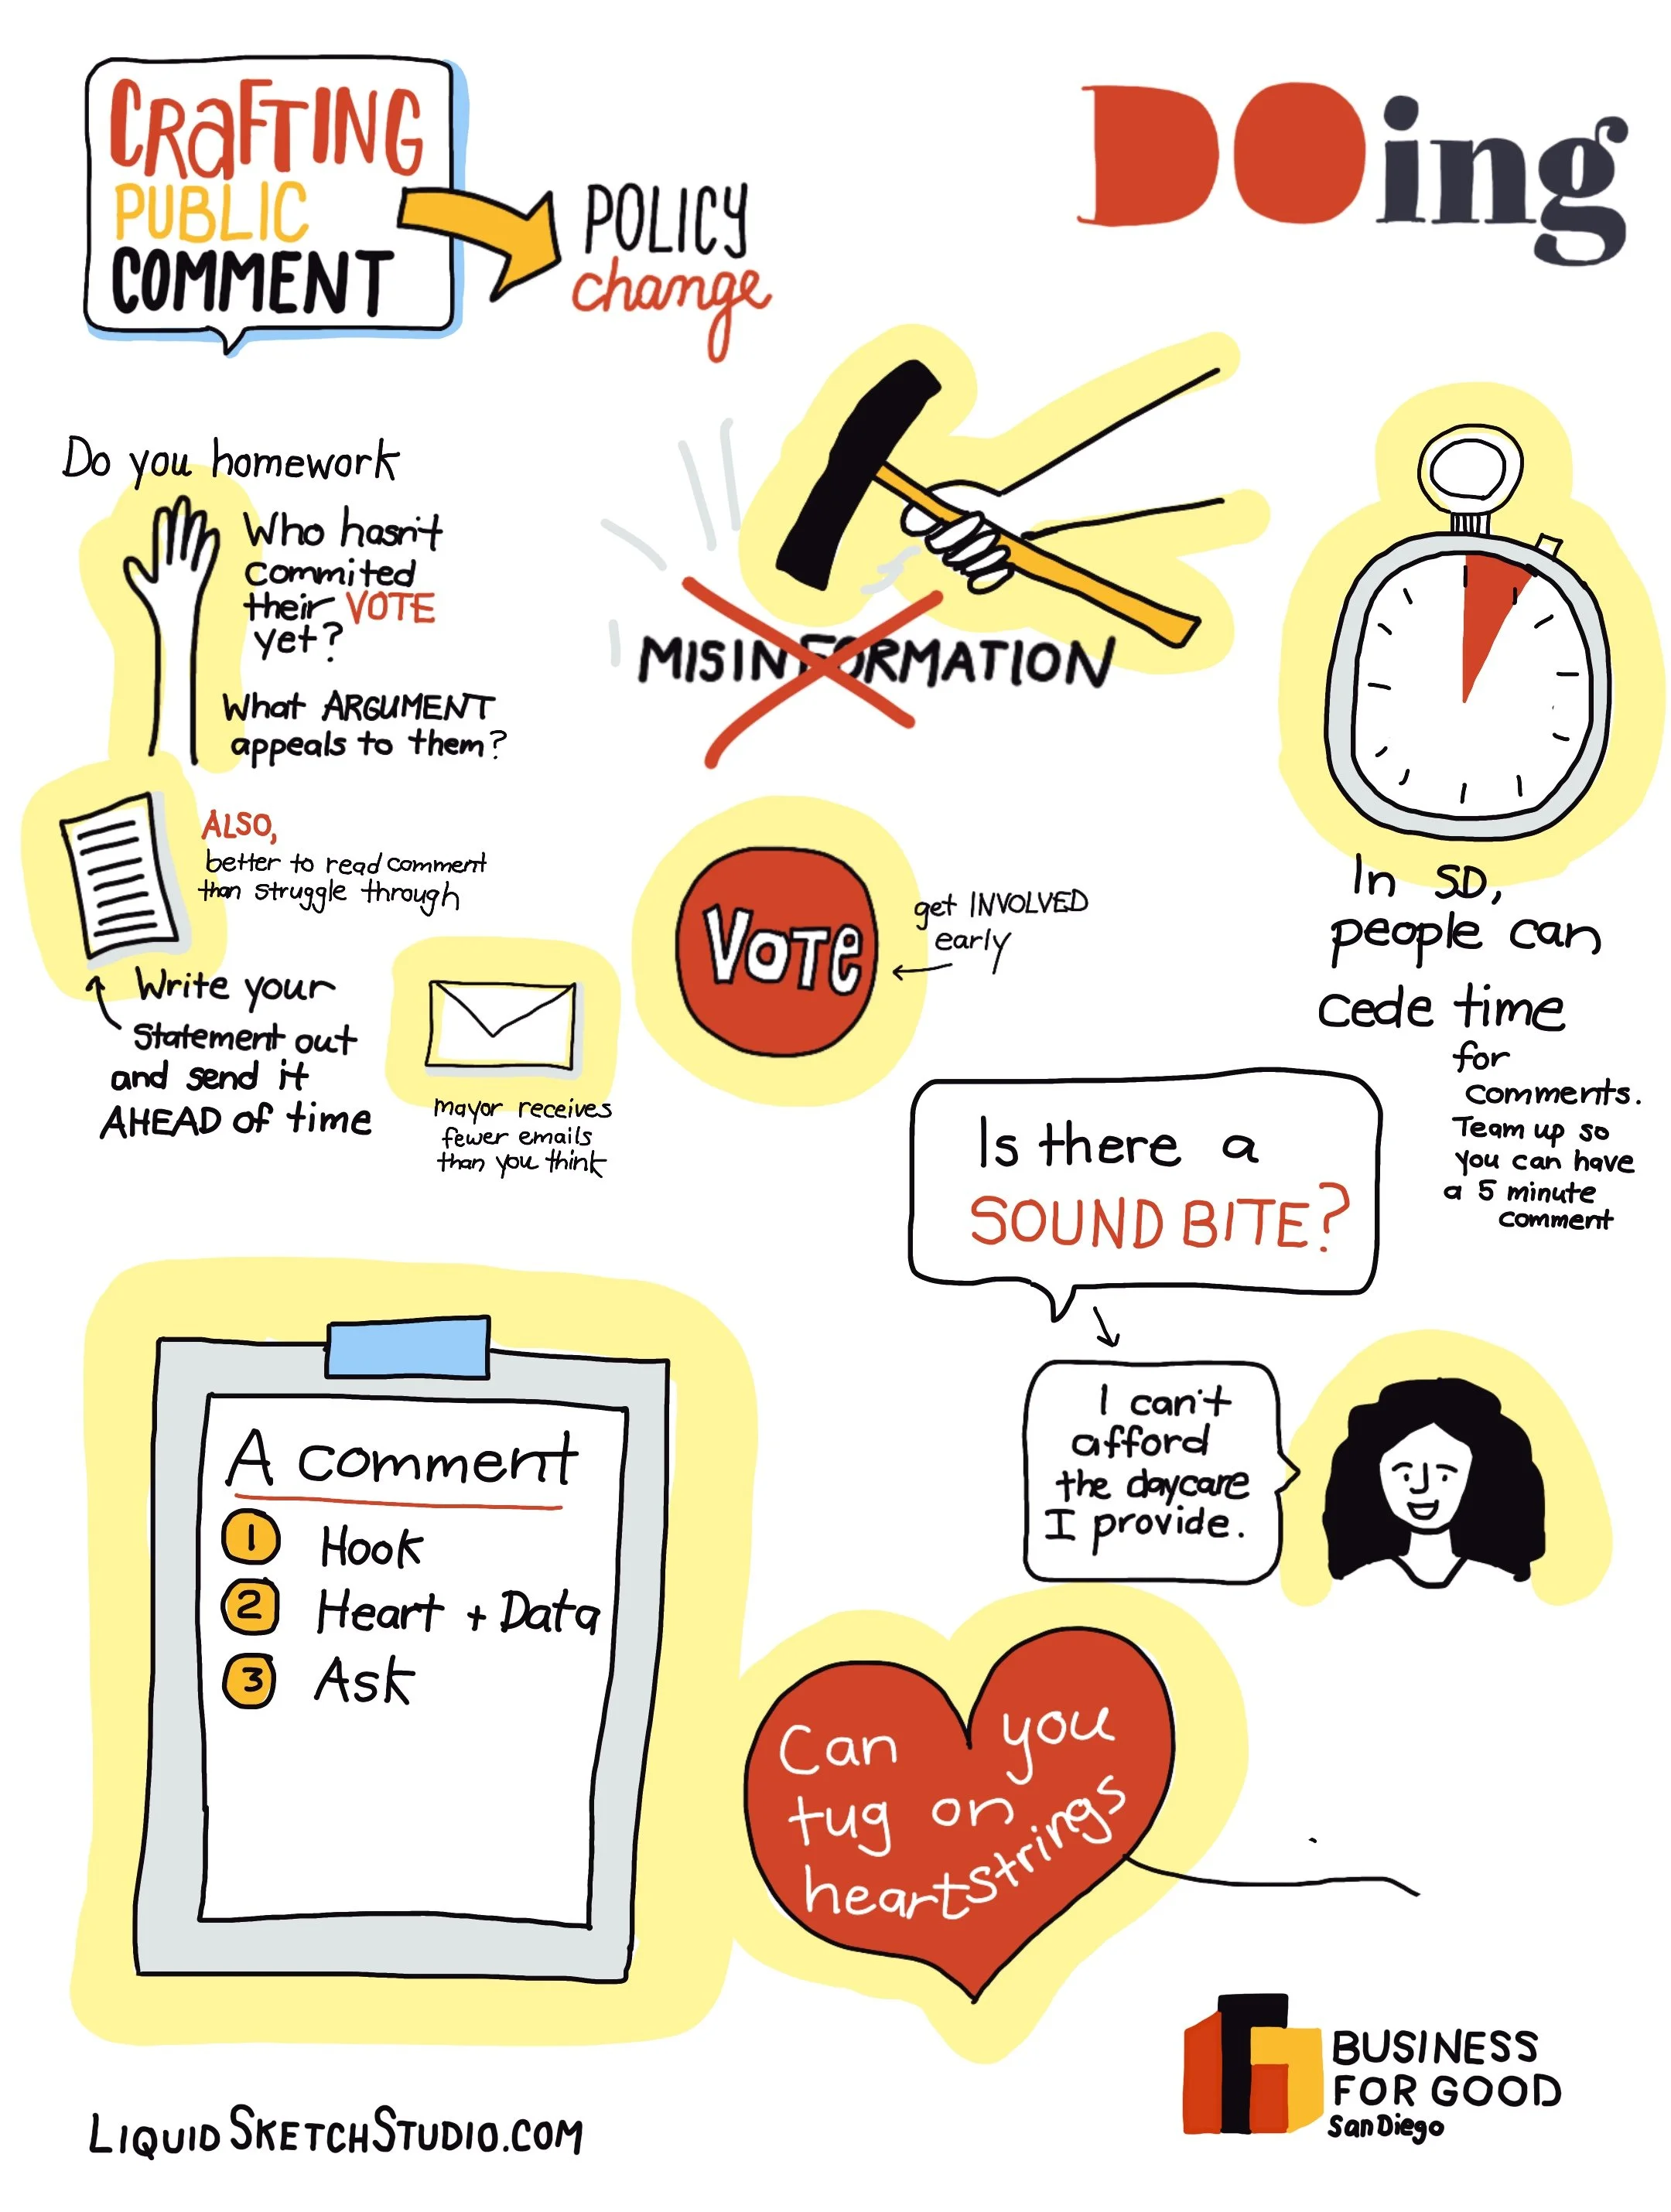 CRAFTING
PUBLIC
COMMENT
POLICY
change
DOing
Do you homework
Who hasn't
commited
their VOTE
yet?
What ARGUMENT
appeals to them?
ALSO,
better to read comment
than struggle through
Write your
statement out
and send it
AHEAD of time
mayor receives
fewer emails
than you think
MISINFORMATION
VOTE
get INVOLVED
early
In SD,
people can
cede time
for
comments.
Team up so
you can have
a 5 minute
comment
Is there a
SOUND BITE?
I can't
afford
the daycare
I provide.
A comment
1 Hook
2 Heart + Data
3 Ask
Can you
tug on
heartstrings
BUSINESS
FOR GOOD
San Diego
LIQUIDSKETCHSTUDIO.COM